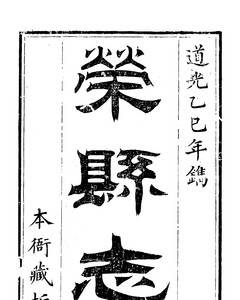 道光乙巳年鐫
榮縣志
本衙藏板